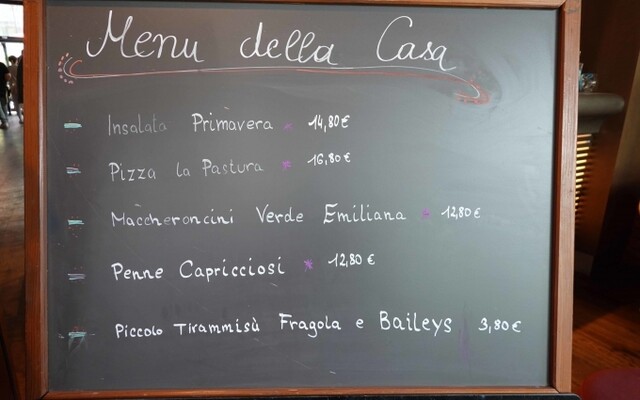 Menu della Casa
Insalata Primavera * 14,80 €
Pizza la Pastura * 16,80 €
Maccheroncini Verde Emiliana * 12,80 €
Penne Capricciosi * 12,80 €
Piccolo Tirammisù Fragola e Baileys 3,80 €